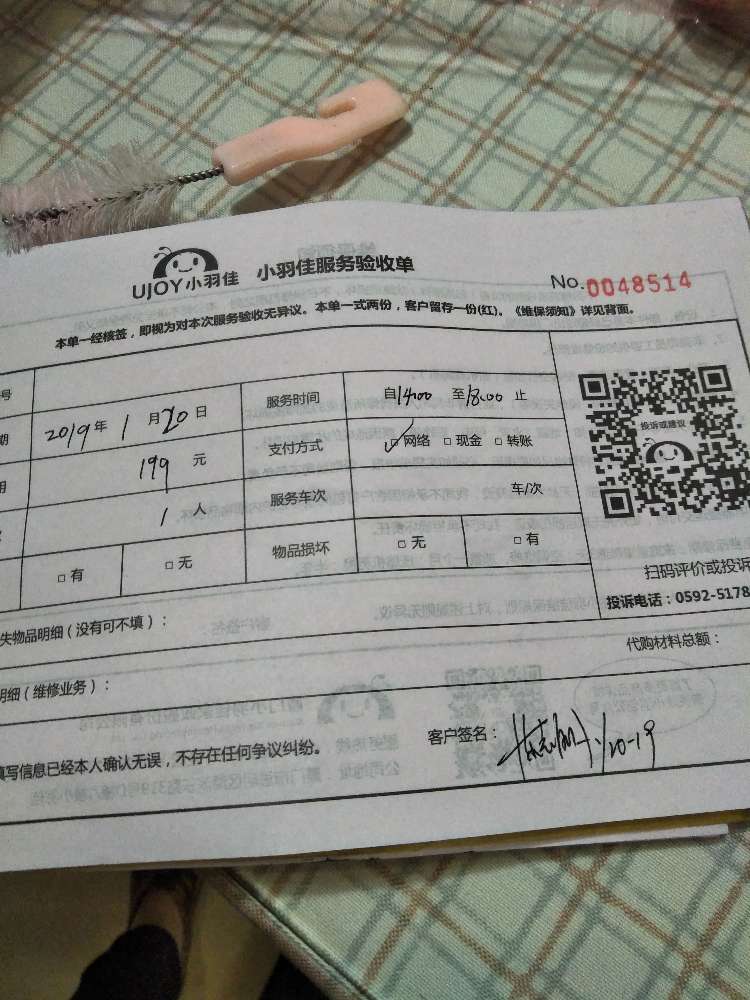 UJOY小羽佳 小羽佳服务验收单
No.0048514
本单一经核签，即视为对本次服务验收无异议。本单一式两份，客户留存一份(红)。《维保须知》详见背面。
号
期 2019年1月20日 服务时间 自14:00 至18:00 止
用 199 元 支付方式 ✓□网络 □现金 □转账
1 人 服务车次 车/次
□有 □无 物品损坏 □无 □有
投诉或建议
扫码评价或投诉
投诉电话：0592-5178
失物品明细（没有可不填）：
明细（维修业务）： 代购材料总额：
填写信息已经本人确认无误，不存在任何争议纠纷。 客户签名： 1/20-19